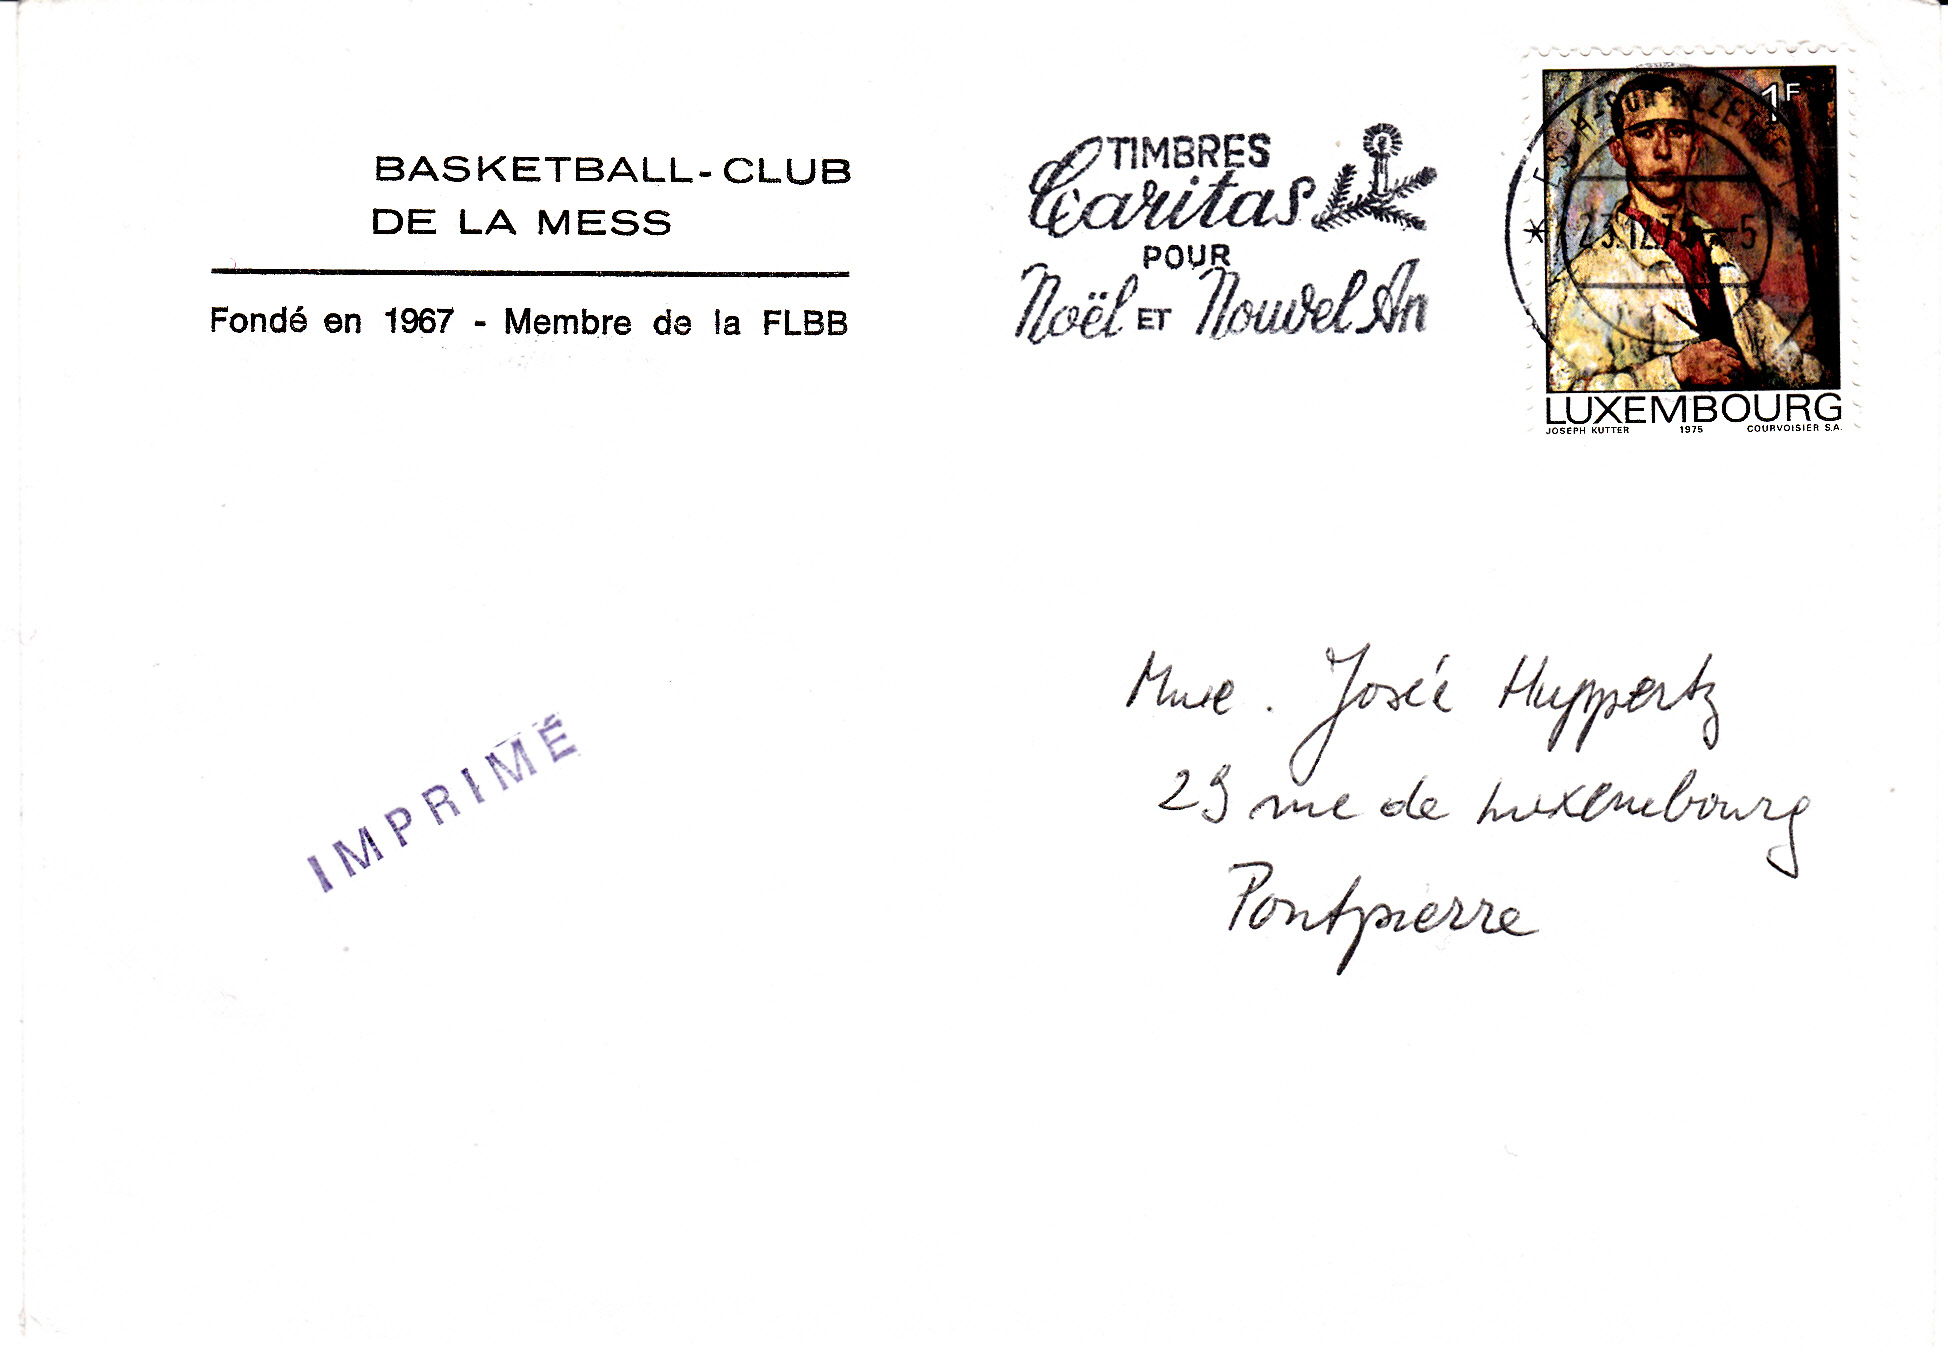 BASKETBALL-CLUB
DE LA MESS
Fondé en 1967 - Membre de la FLBB
TIMBRES
Caritas
POUR
Noël ET Nouvel An
ESCH-SUR-ALZETTE
23.12.75 - 5
1F
LUXEMBOURG
JOSEPH KUTTER 1975 COURVOISIER S.A.
IMPRIMÉ
Mme. Josée Huppertz
29 rue de Luxembourg
Pontpierre